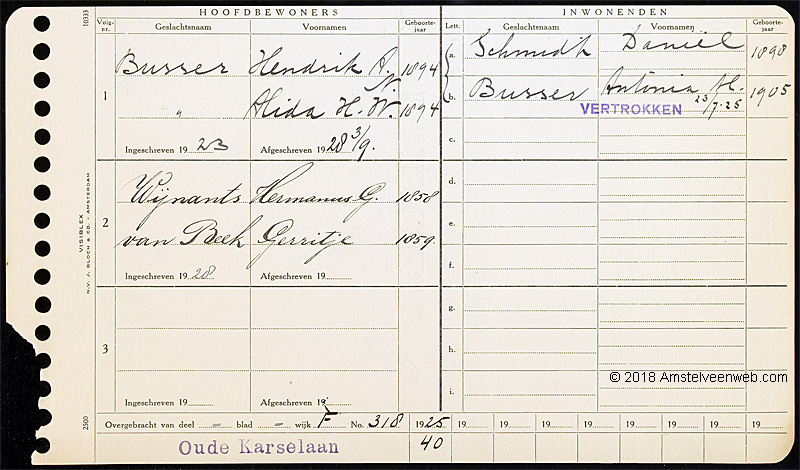 HOOFDBEWONERS
INWONENDEN
Volg-nr. Geslachtsnaam Voornamen Geboorte-jaar Lett. Geslachtsnaam Voornamen Geboorte-jaar
1 Busser Hendrik A. N. 1894
" Alida H. W. 1894
Ingeschreven 19 23 Afgeschreven 19 28 3/9.
2 Wijnants Hermanus G. 1858
van Beek Gerritje 1859.
Ingeschreven 19 28 Afgeschreven 19
3
Ingeschreven 19 Afgeschreven 19
a. Schmidt Daniël 1898
b. Busser Antonia H. 1905
VERTROKKEN 23/7-25
c.
d.
e.
f.
g.
h.
i.
Overgebracht van deel - blad - wijk F No. 318 1925 19 19 19 19 19 19 19
Oude Karselaan 40
10333
VISIBLEX
N.V. J. BLOCH & CO. - AMSTERDAM
2500
© 2018 Amstelveenweb.com